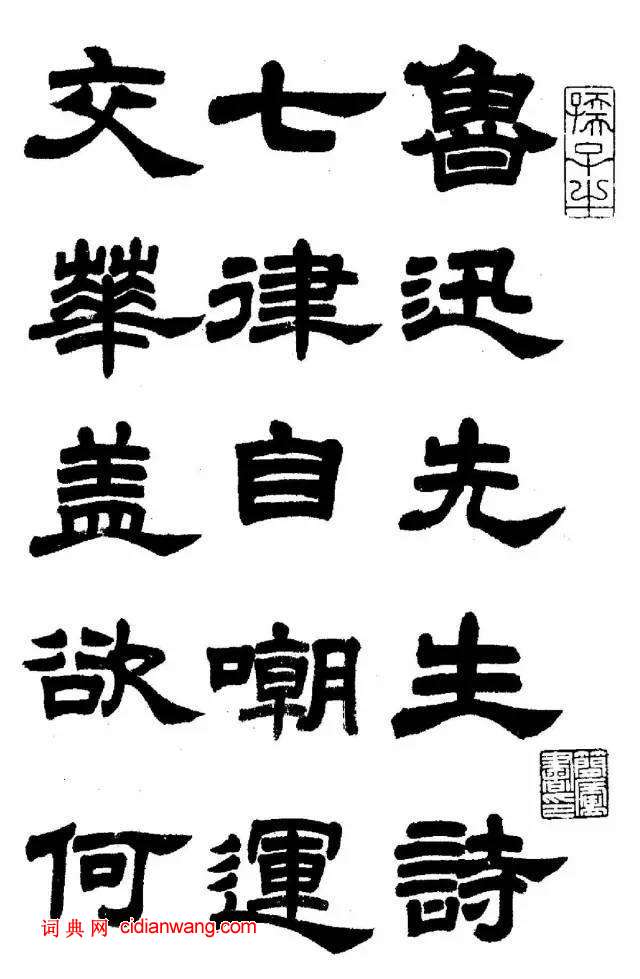 魯迅先生詩
七律自嘲運
交華盖欲何
孺子牛
词典网 cidianwang.com